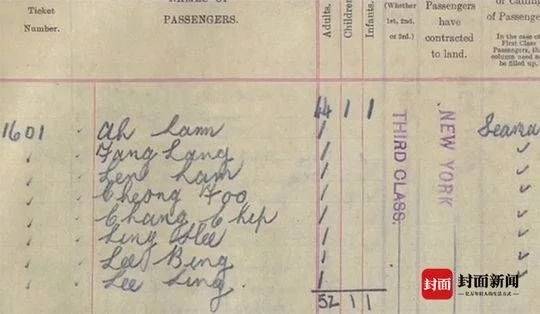 Ticket Number.
NAMES OF PASSENGERS.
Adults.
Children
Infants.
(Whether 1st, 2nd, or 3rd.)
Passengers have contracted to land.
of Passenge
In the case of First Class Passengers, this column need not be filled up.
44 1 1
1601 Ah Lam 1 Seama
✓ Fang Lang 1 ✓
✓ Len Lam 1 ✓
✓ Cheong Foo 1 ✓
✓ Chang Chip 1 ✓
✓ Ling Hee 1 ✓
✓ Lee Bing 1 ✓
✓ Lee Ling 1 ✓
THIRD CLASS.
NEW YORK
52 1 1
封面 封面新闻
亿万年轻人的生活方式